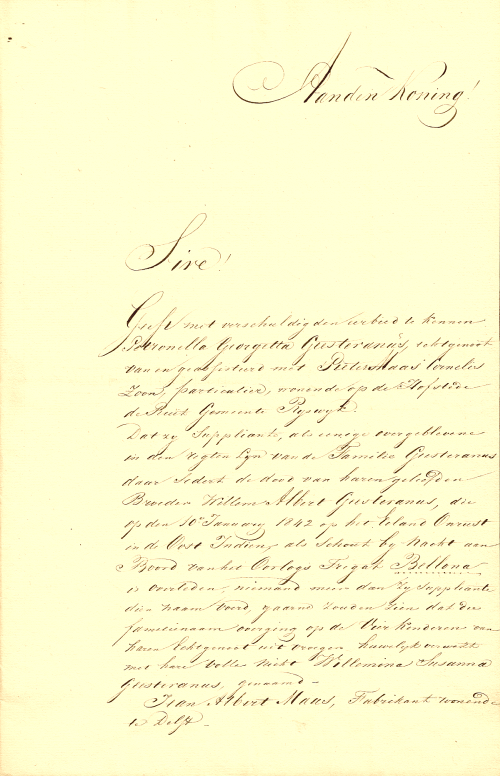 Aan den Koning!
Sire!
Geeft met verschuldigden eerbied te kennen
Petronella Georgetta Geesteranus, echtgenoot
van en geassisteerd met Pieter Maas Cornelis
Zoon, particulier, wonende op de Hofstede
de Burt Gemeente Ryswyk
Dat zy Suppliante, als eenige overgeblevene
in den regten Lyn van de Familie Geesteranus
daar sedert de dood van haren geliefden
Broeder Willem Albert Geesteranus, die
op den 10 January 1842 op het Eiland Onrust
in de Oost Indien, als Schout by Nacht aan
Boord van het Oorlogs Fregat Bellona
is overleden, niemand meer dan zy Suppliante
dien naam voerd, gaarne zouden zien dat die
familienaam overging op de Vier Kinderen van
haren Echtgenoot uit vroeger huwelyk verwekt
met hare Volle Nicht Willemina Susanna
Geesteranus, genaamd -
Jean Albert Maas, Fabrikant wonende
te Delft -